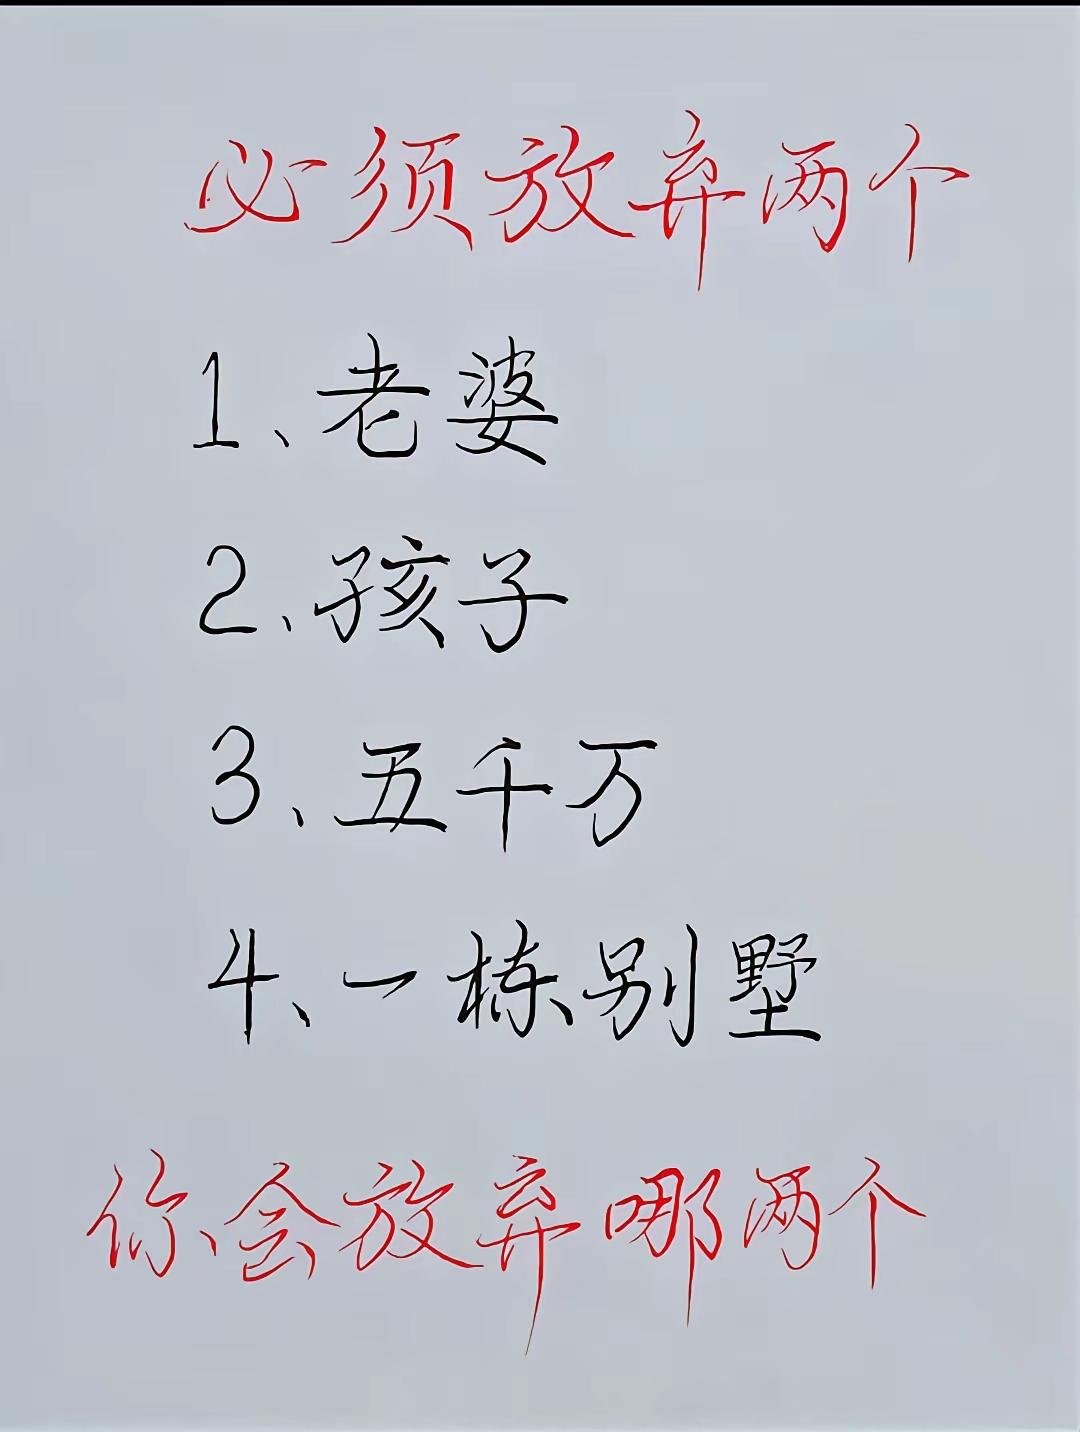 必须放弃两个
1、老婆
2、孩子
3、五千万
4、一栋别墅
你会放弃哪两个